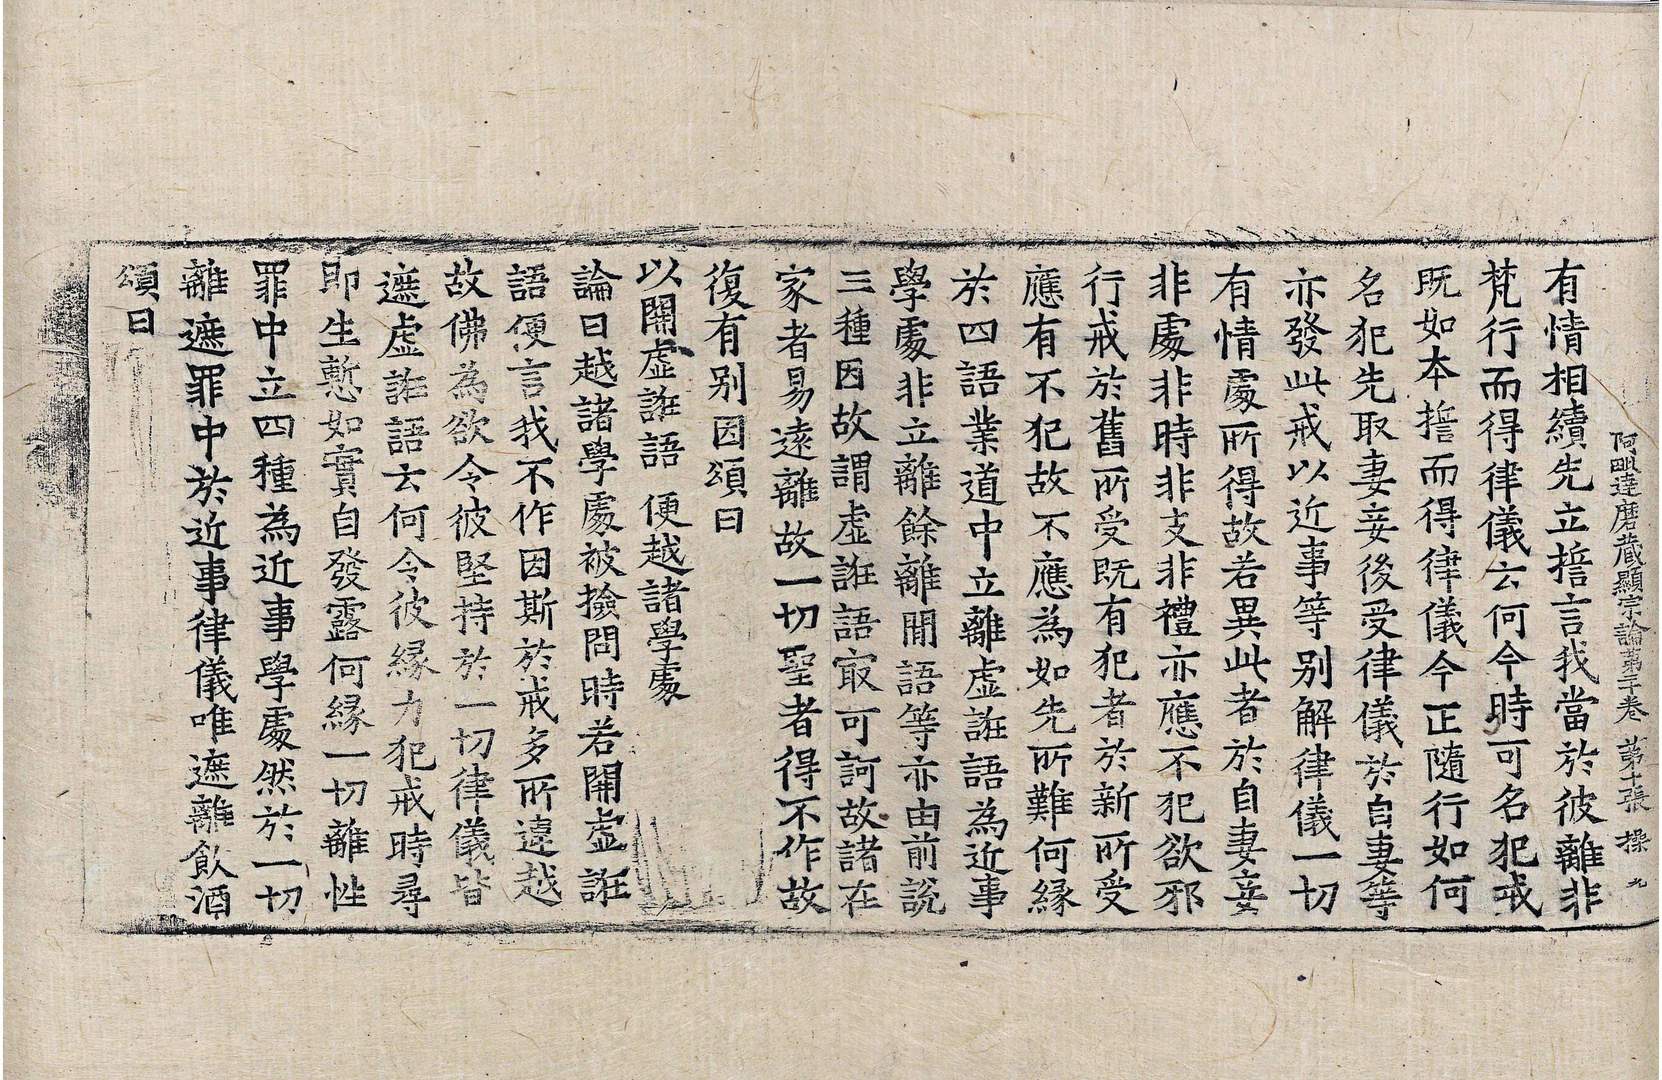 阿毗達磨藏顯宗論第二十卷 第十張 操 九
有情相續先立誓言我當於彼離非
梵行而得律儀云何今時可名犯戒
既如本誓而得律儀今正隨行如何
名犯先取妻妾後受律儀於自妻等
亦發此戒以近事等別解律儀一切
有情處所得故若異此者於自妻妾
非處非時非支非禮亦應不犯欲邪
行戒於舊所受既有犯者於新所受
應有不犯故不應為如先所難何緣
於四語業道中立離虛誑語為近事
學處非立離餘離間語等亦由前說
三種因故謂虛誑語㝡可訶故諸在
家者易遠離故一切聖者得不作故
復有別因頌曰
以開虛誑語 便越諸學處
論曰越諸學處被撿問時若開虛誑
語便言我不作因斯於戒多所違越
故佛為欲令彼堅持於一切律儀皆
遮虛誑語云何令彼緣力犯戒時尋
即生慙如實自發露何緣一切離性
罪中立四種為近事學處然於一切
離遮罪中於近事律儀唯遮離飲酒
頌曰